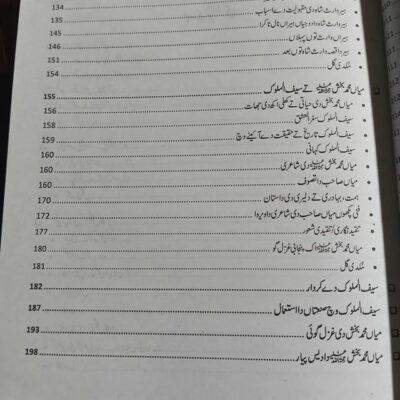 ہیر وارث شاہ دی مقبولیت دے اسباب 134
ہیر وارث شاہ دا دوجیاں ہیراں نال ٹاکرا 135
ہیراں وارث توں پہلاں 145
ہیر دا قصہ وارث شاہ توں بعد 146
مُکدی گل 151
154
میاں محمد بخش تے سیف الملوک 155
میاں محمد بخش دی حیاتی تے جھات 156
سیف الملوک سفر العشق 156
سیف الملوک تاریخ تے حقیقت دے آئینے وچ
سیف الملوک کہانی
میاں محمد بخش دی شاعری 160
میاں صاحب دا تصوف 160
ہمت، بہادری تے دلیری دی داستان 160
فنی پکھوں میاں صاحب دی شاعری دا ویروا 172
تنقید نگاری/تنقیدی شعور 177
میاں محمد بخش اک پنجابی غزل گو 180
مُکدی گل 181
سیف الملوک دے کردار 182
سیف الملوک وچ صنعتاں دا استعمال 187
میاں محمد بخش دی غزل گوئی 193
میاں محمد بخش دا دیس پیار 198